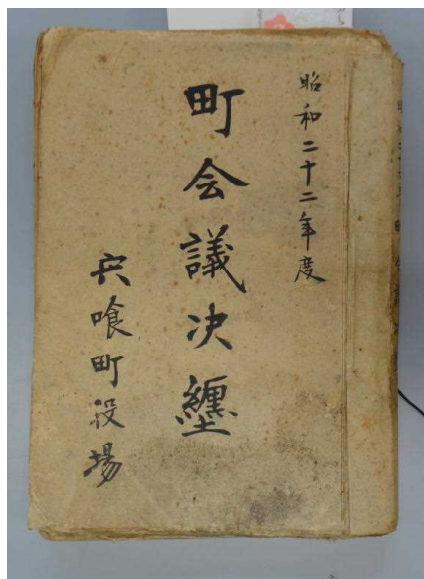 昭和二十二年度
町会議決纏
宍喰町役場